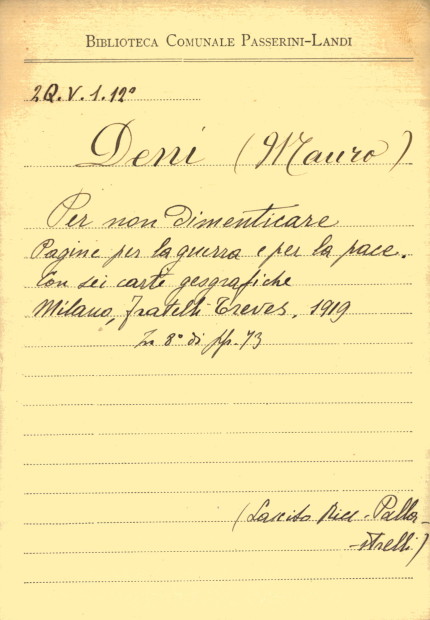 BIBLIOTECA COMUNALE PASSERINI-LANDI
2Q.V.1.12°
Deni (Mauro)
Per non dimenticare
Pagine per la guerra e per la pace.
Con sei carte geografiche
Milano, Fratelli Treves, 1919
In 8° di pp. 73
(Lascito Ricc. Palla-
strelli)